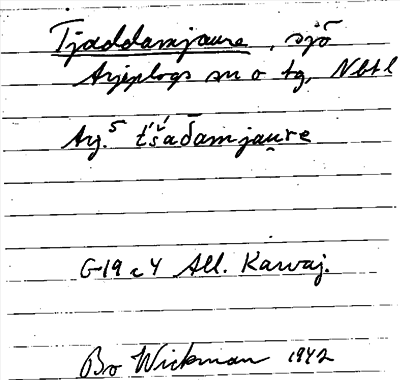 Tjaddamjaure, sjö
Arjeplogs sn o tg, Nbtl
Arj.⁵ t'š́aδamjau̯re
G-19 c 4 All. Karvaj.
Bo Wickman 1942